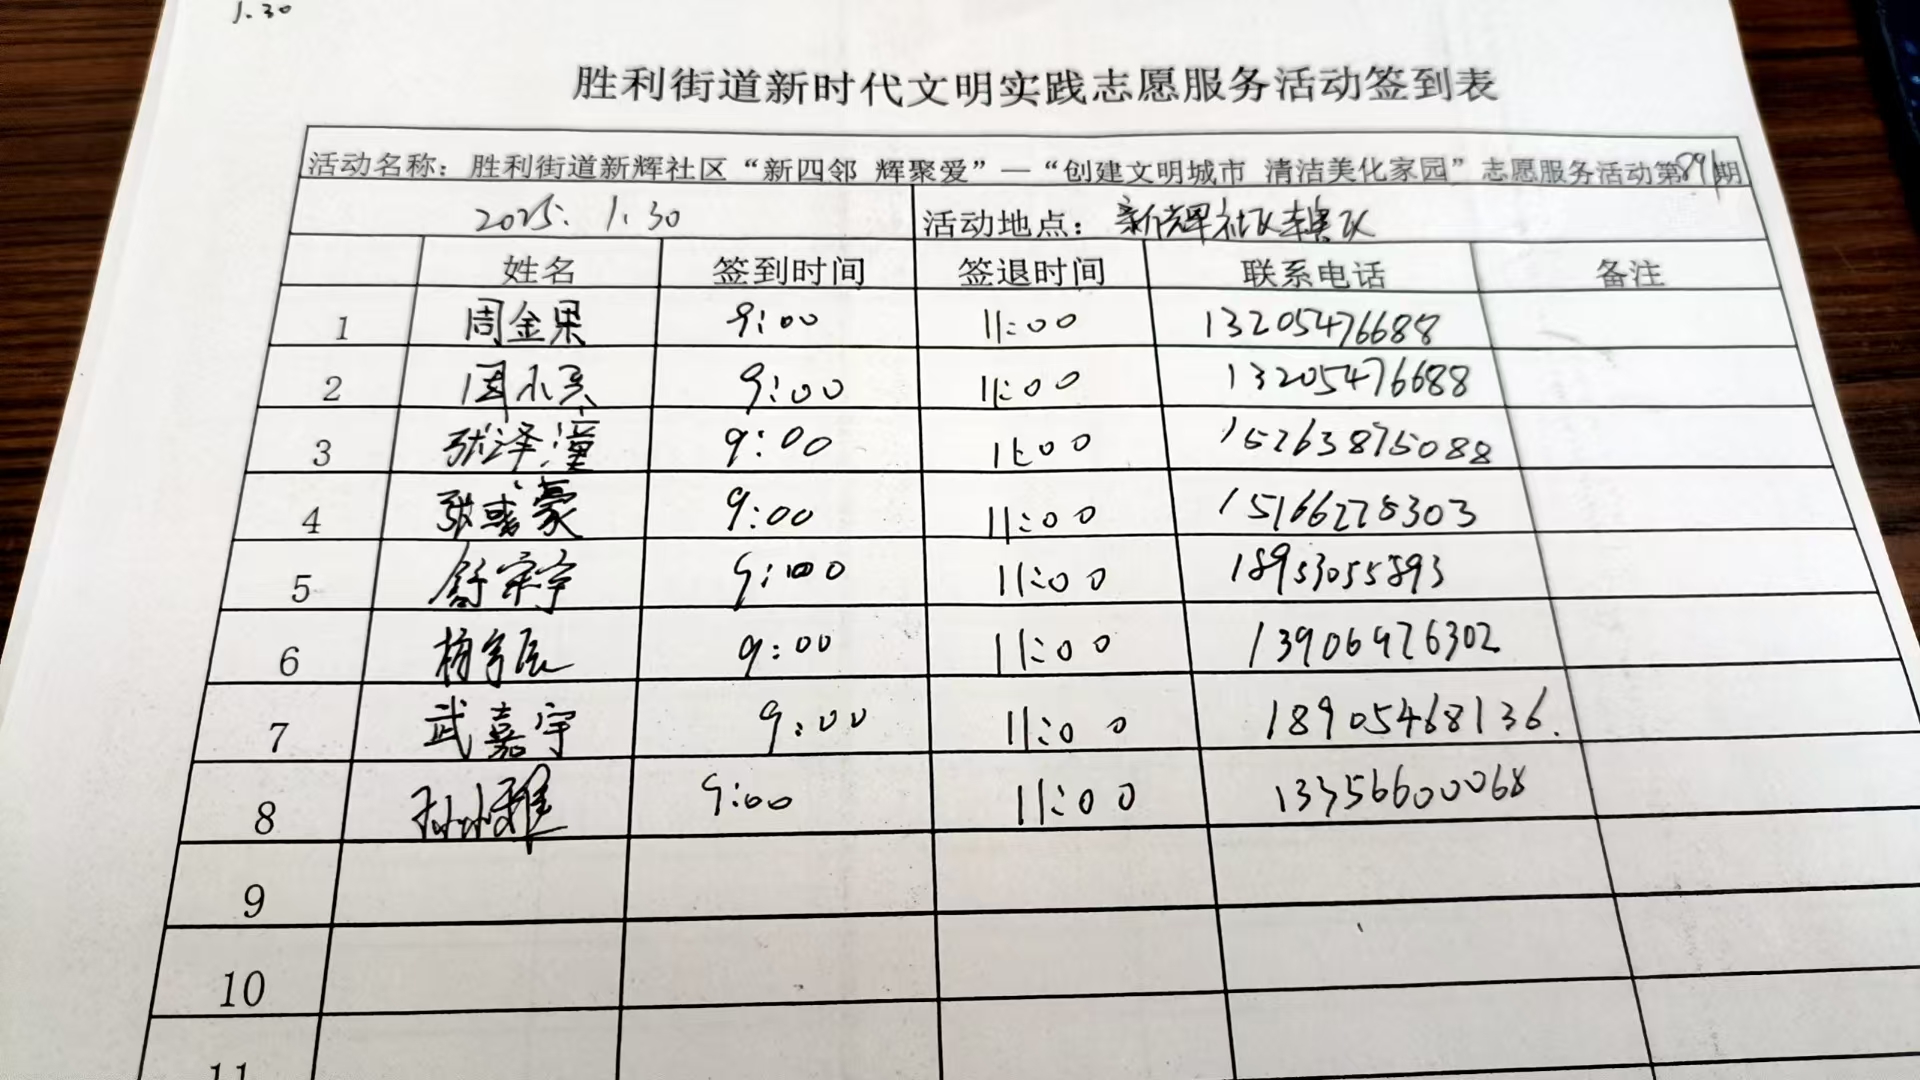 1.30
胜利街道新时代文明实践志愿服务活动签到表
活动名称：胜利街道新辉社区“新四邻 辉聚爱”—“创建文明城市 清洁美化家园”志愿服务活动第891期
2025. 1.30 活动地点：新辉社区辖区
姓名 签到时间 签退时间 联系电话 备注
1 周金果 9:00 11:00 13205476688
2 周小 9:00 11:00 13205476688
3 张泽潼 9:00 11:00 15263875088
4 张 豪 9:00 11:00 15166228303
5 舒宋宇 9:00 11:00 18953055893
6 杨宇辰 9:00 11:00 13906476302
7 武嘉宇 9:00 11:00 18905468136.
8 9:00 11:00 13356600068
9
10
11